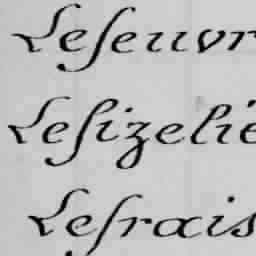 Lefeuvr
Lefizelie
Lefrais